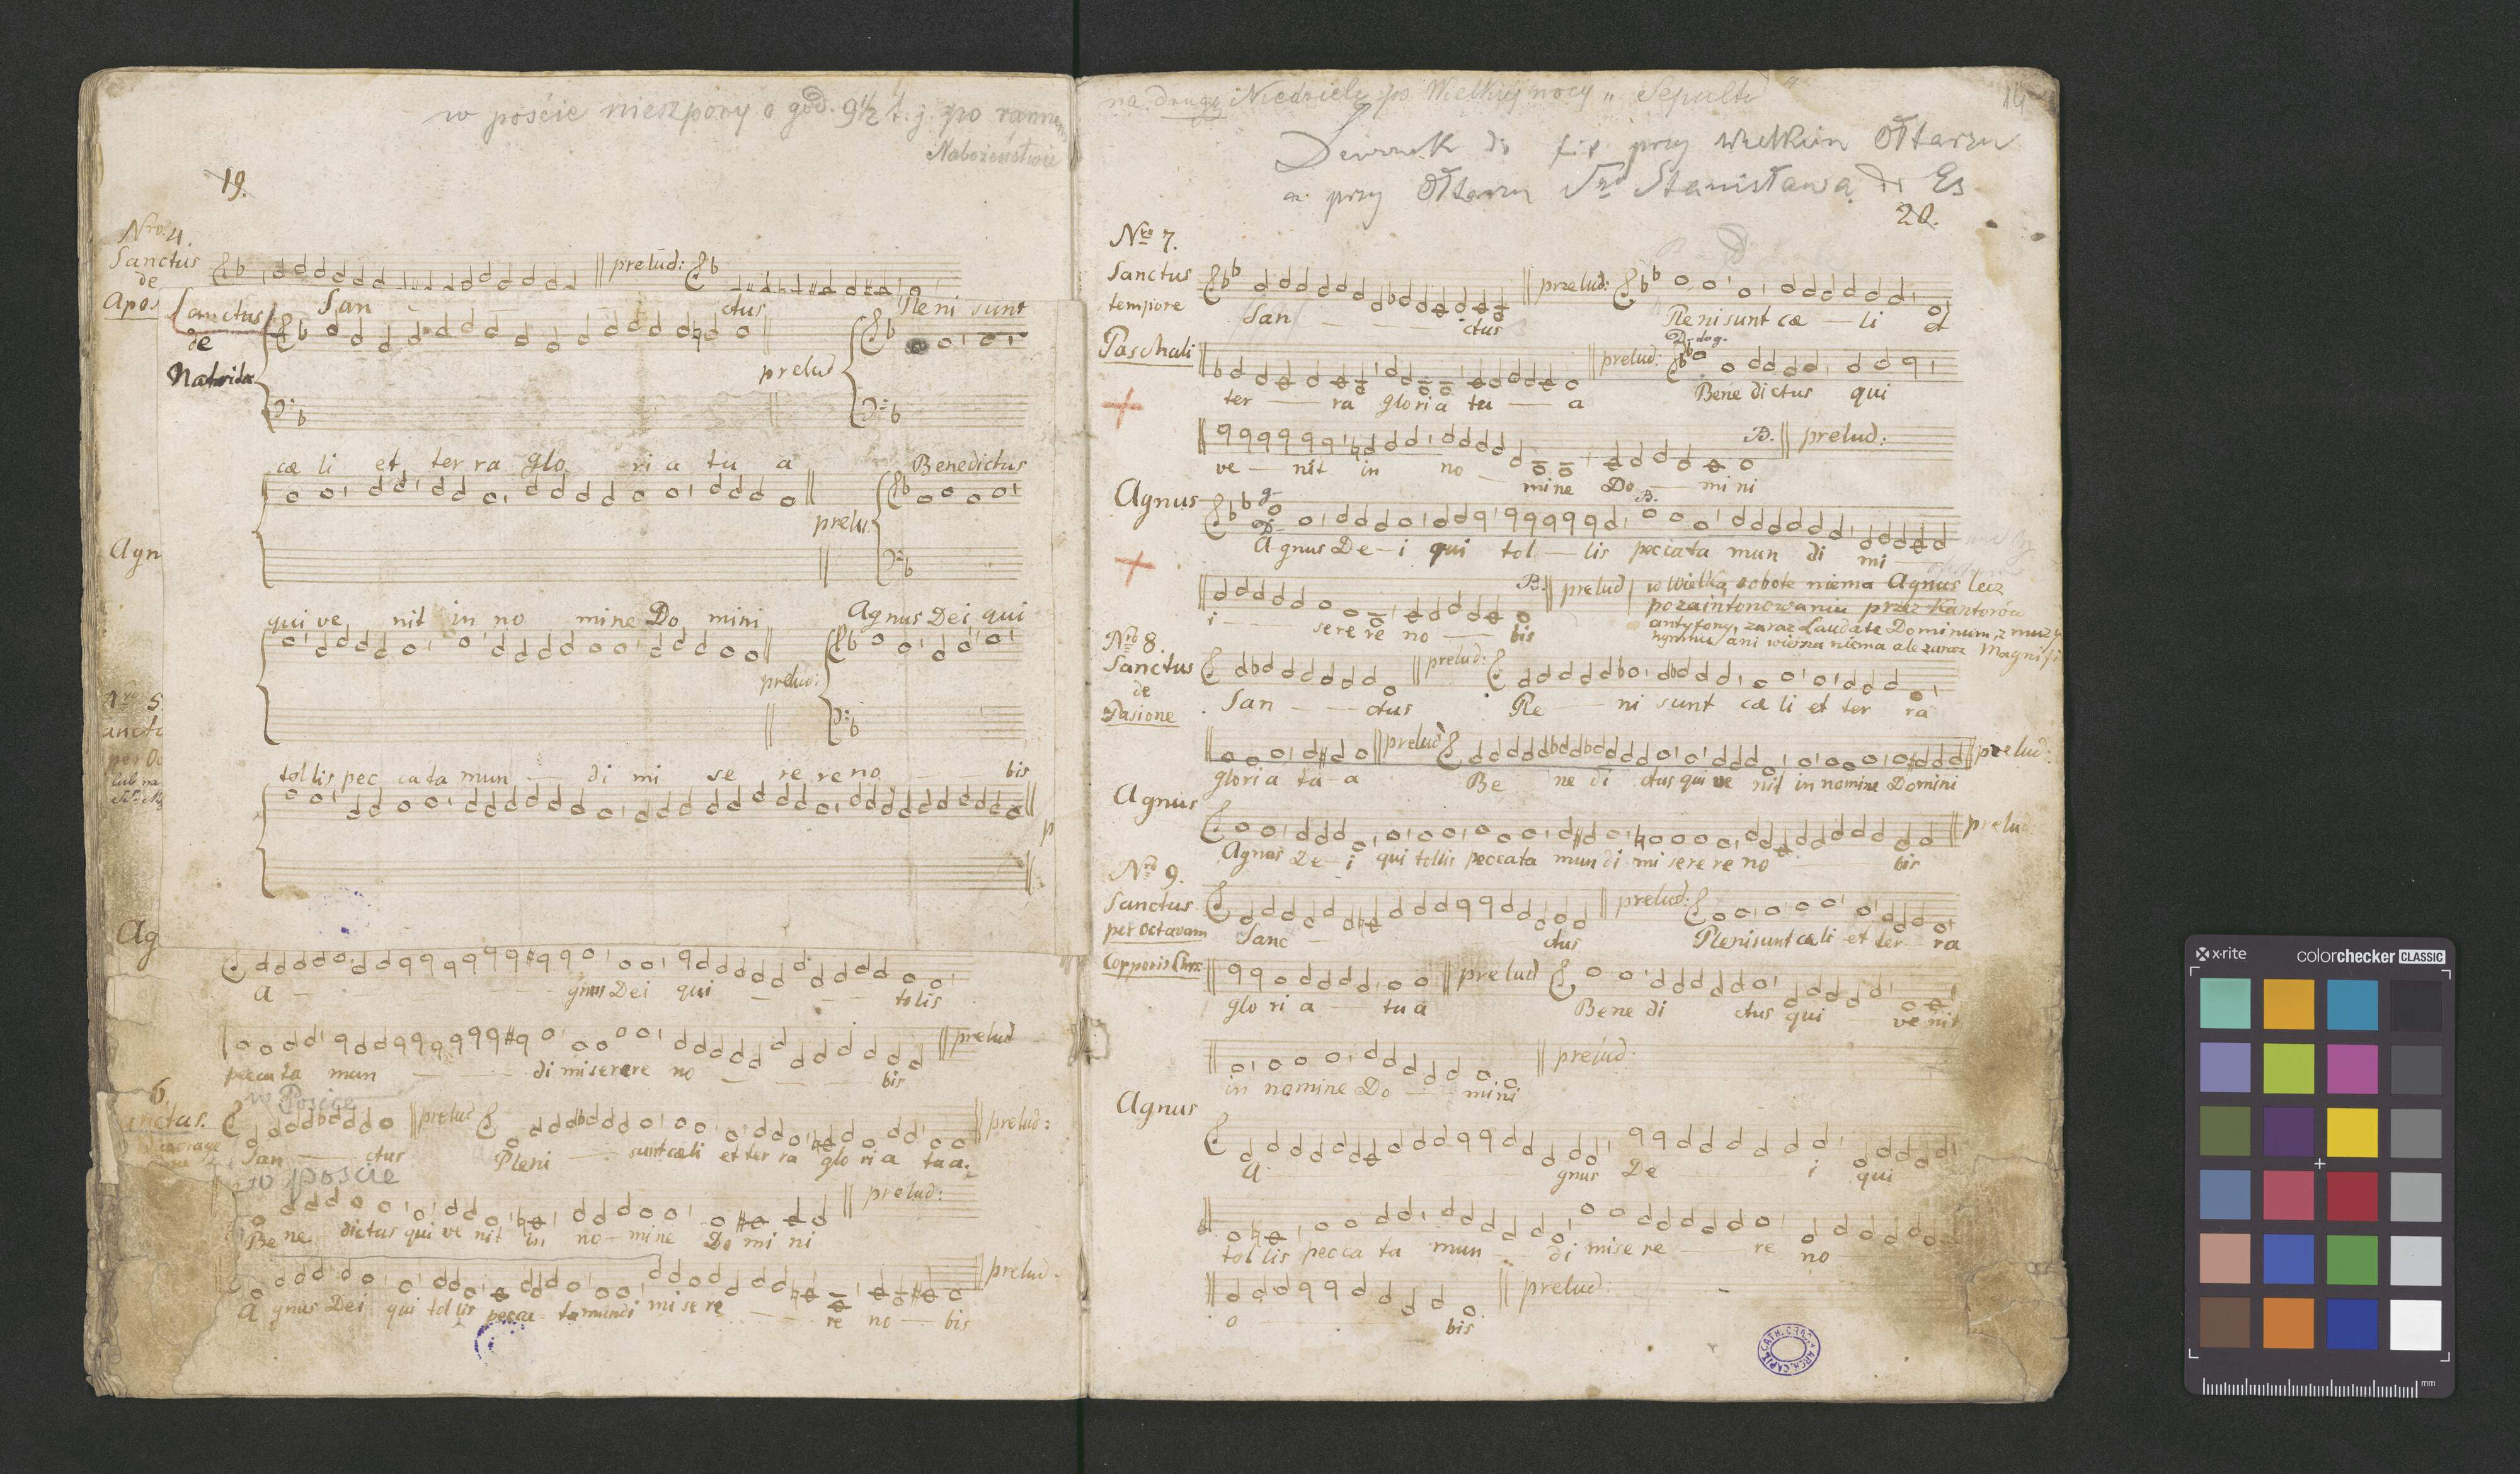 w poście nieszpory o god. 9 1/2 t. j. po rannem
Nabożeństwie
19.
Nro. 4.
Sanctus
de
Apos
prelud:
San ctus Pleni sunt
Sanctus
de
Nativita
prelud
cæ li et ter ra glo ri a tu a Benedictus
prelu:
Agn
qui ve nit in no mine Do mini Agnus Dei qui
prelud:
tol lis pec ca ta mun di mi se re re no bis
p
Nro 5
ancta
per Oc
Ag
A gnus Dei qui tolis
prelud
peccata mun di miserere no bis
6.
w Poście
nctus.
prelud
prelud:
San ctus Pleni sunt cæli et ter ra glo ri a tua.
w poście
prelud:
Be ne dictus qui ve nit in no mine Do mi ni
prelud.
A gnus Dei qui tol lis pecca ta mundi mi se re re no bis
na drugę Niedzielę po Wielkiej nocy „ Sepulto "
14
Dzwonek do przy wielkim Ołtarzu
a przy Ołtarzu Sgo Stanisława do Es
20.
Nro 7.
Sanctus
tempore
Paschali
prelud:
San ctus Pleni sunt cæ li et
prelud:
ter ra gloria tu a Bene dictus qui
B. prelud:
ve nit in no mine Do mini
Agnus
A gnus De i qui tol lis peccata mun di mi
B. prelud
i serere no bis
w Wielką sobote niema Agnus lecz
po zaintonowaniu przez Kantorów
antyfony, zaraz Laudate Dominum, z muzy
hymnu ani wiersza niema ale zaraz Magnifi
Nro 8.
Sanctus
de
Pasione
prelud:
San ctus Ple ni sunt cæ li et ter ra
prelud
prelud:
gloria tu a Be ne di ctus qui ve nit in nomine Domini
Agnus
prelud
Agnus De i qui tollis peccata mun di mi serere no bis
Nro 9.
Sanctus
per octavam
Corporis Chris:
prelud:
Sanc ctus Pleni sunt cæli et ter ra
prelud
glo ri a tua Bene di ctus qui ve nit
prelud:
in nomine Do mini
Agnus
A gnus De i qui
tol lis pecca ta mun di mise re re no
prelud:
o bis
x-rite
colorchecker CLASSIC
mm